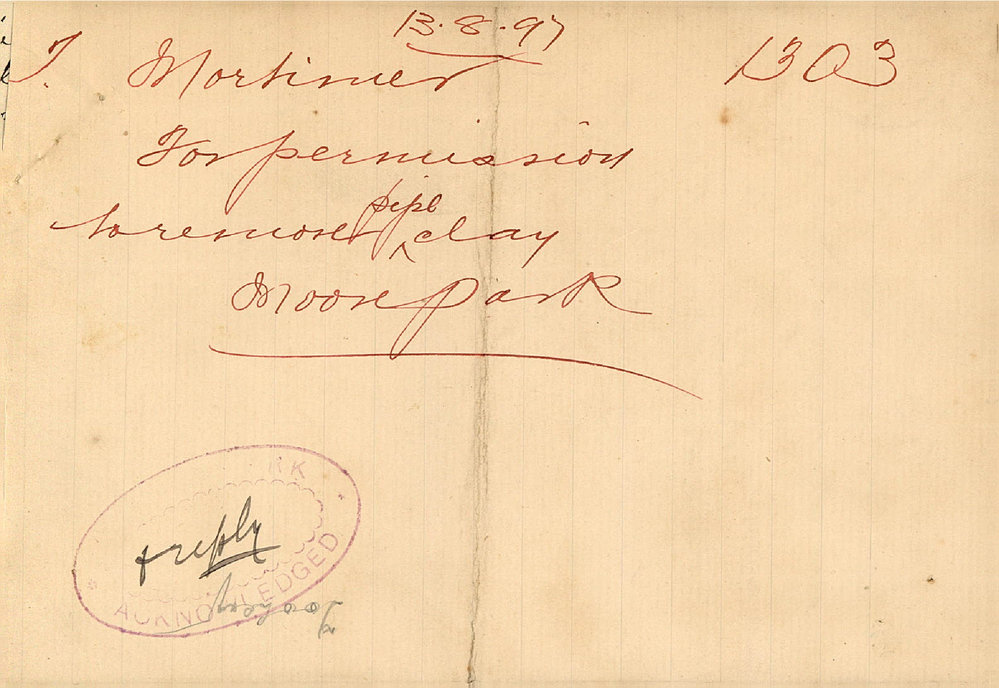 13.8.97
T. Mortimer 1303
For permission
to remove pipe clay
Moore Park
RK
+ reply
ACKNOWLEDGED